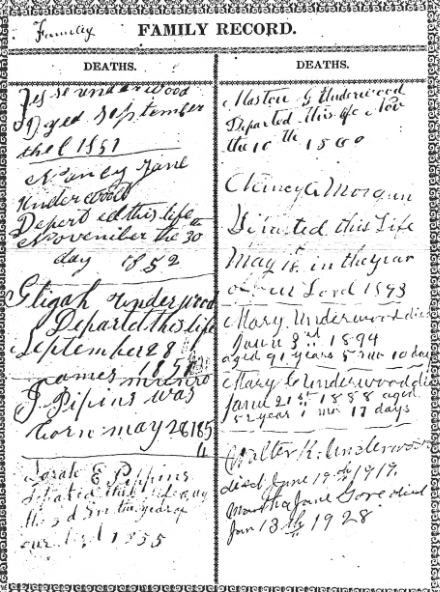 Family
FAMILY RECORD.
DEATHS.
Jesse underwood
Dyed September
the 1851
Nancy Jane
Underwood
Departed this life
November the 30
day 1852
Eligah underwood
Departed this life
September 28
1851
James
J Pipins was
born may 28 185
Sarah E Pippins
this life
the in the year of
our Lord 1855
DEATHS.
Maston G Underwood
Departed this life Nov
the 10th 1860
Morgan
Departed this Life
May 18 in the year
of our Lord 1893
Mary Underwood died
Janu 3rd 1894
aged 91 years 5 mo 10 days
Mary C Underwood died
Janu 21st 1888 aged
52 year 1 mo 17 days
Walter K. Underwood
died June 19th 1919.
Martha Jane Gore died
Jan 13th 1928.